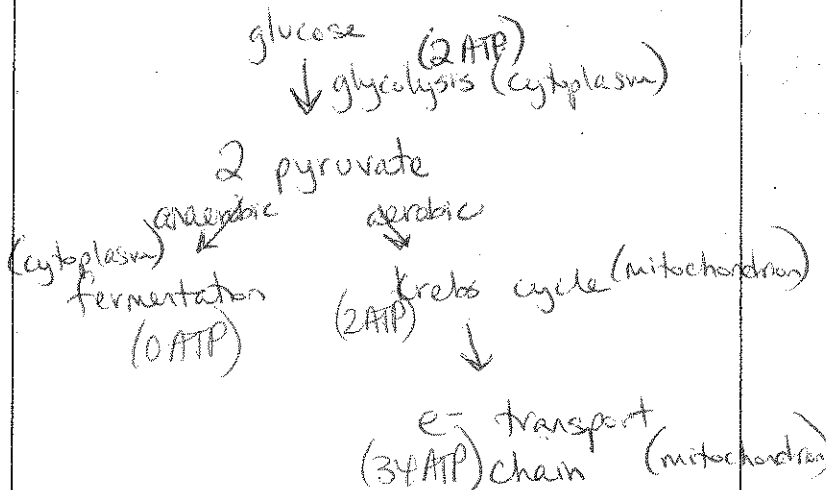 glucose (2 ATP)
glycolysis (cytoplasm)
2 pyruvate
anaerobic aerobic
(cytoplasm)
fermentation Krebs cycle (mitochondrion)
(0 ATP) (2 ATP)
e- transport
(34 ATP) chain (mitochondrion)